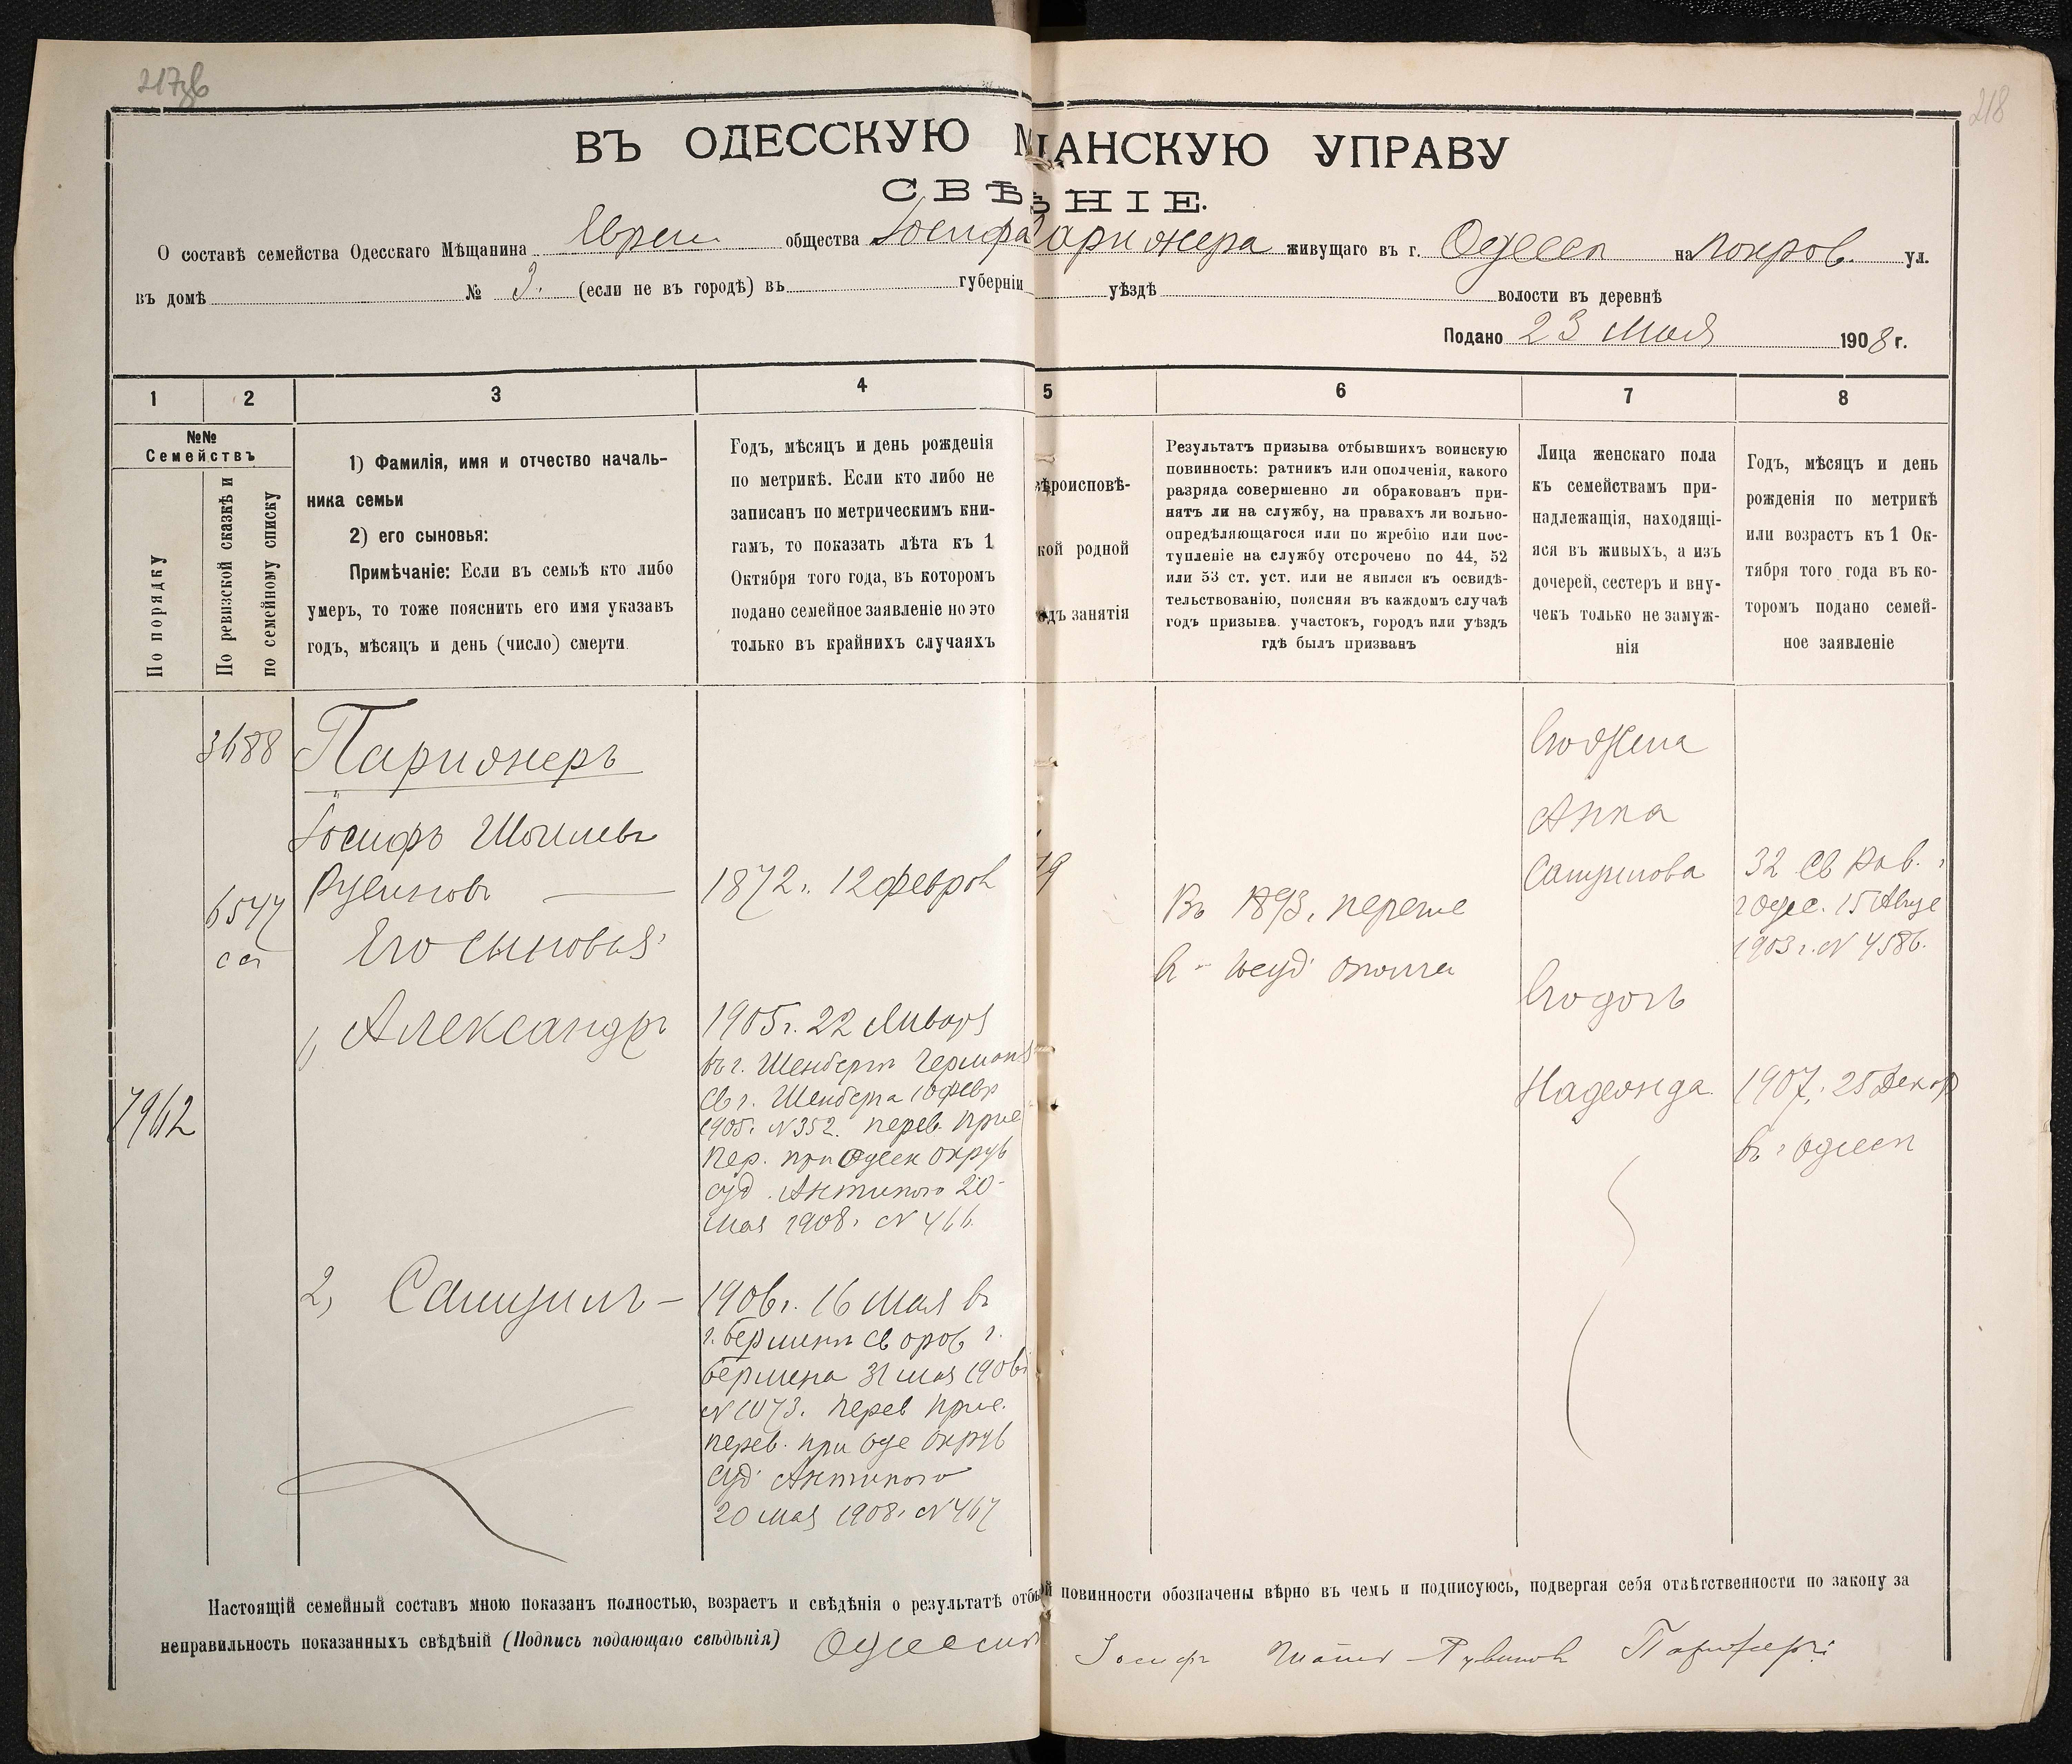 217об
218
ВЪ ОДЕССКУЮ М ЩАНСКУЮ УПРАВУ
СВѢ ѢНІЕ.
О составѣ семейства Одесскаго Мѣщанина Евреи общества Іосифа Парижера живущаго въ г. Одессѣ на Покров. ул.
въ домѣ № 3. (если не въ городѣ) въ губерніи уѣздѣ волости въ деревнѣ
Подано 23 Мая 1908 г.
1 2 3 4 5 6 7 8
№№
Семействъ
По порядку
По ревизской сказкѣ и
по семейному списку
1) Фамилія, имя и отчество началь-
ника семьи
2) его сыновья:
Примѣчаніе: Если въ семьѣ кто либо
умеръ, то тоже пояснить его имя указавъ
годъ, мѣсяцъ и день (число) смерти
Годъ, мѣсяцъ и день рожденія
по метрикѣ. Если кто либо не
записанъ по метрическимъ кни-
гамъ, то показать лѣта къ 1
Октября того года, въ которомъ
подано семейное заявленіе но это
только въ крайнихъ случаяхъ
ѣроисповѣ-
кой родной
одъ занятія
Результатъ призыва отбывшихъ воинскую
повинность: ратникъ или ополченія, какого
разряда совершенно ли обракованъ при-
нятъ ли на службу, на правахъ ли вольно-
опредѣляющагося или по жребію или пос-
тупленіе на службу отсрочено по 44, 52
или 53 ст. уст. или не явился къ освидѣ-
тельствованію, поясняя въ каждомъ случаѣ
годъ призыва. участокъ, городъ или уѣздъ
гдѣ былъ призванъ
Лица женскаго пола
къ семействамъ при-
надлежащія, находящі-
яся въ живыхъ, а изъ
дочерей, сестеръ и вну-
чекъ только не замуж-
нія
Годъ, мѣсяцъ и день
рожденія по метрикѣ
или возрастъ къ 1 Ок-
тября того года въ ко-
торомъ подано семей-
ное заявленіе
3688
Парижеръ
Іосифъ Шоилевъ
Рувиновъ
1872г. 12 феврал
6547
Его сыновья:
1, Александръ
1905г. 22 Января
въ г. Шенбергѣ Герман
св г. Шенберга 10 февр
1905г. №352. перев. прис
пер. при Одесс окруж
суд. Антипого 20
мая 1908г. №466.
7962
2, Самуилъ
1906г. 16 Мая въ
г. Берлинѣ св г.
Берлина 31 мая 1906г
№1073. перев прис.
перев. при Оде окруж
суд Антипого
20 мая 1908г. №467
Въ 1893г.
Его жена
Анна
Самуилова
32 св Рав.
г Одес. 15 Авгус
1903 г. № 4586.
Его дочь
Надежда
1907г. 25 Декаб
въ г Одессѣ
Настоящій семейный составъ мною показанъ полностью, возрастъ и свѣдѣнія о результатѣ отбы й повинности обозначены вѣрно въ чемъ и подписуюсь, подвергая себя отвѣтственности по закону за
неправильность показанныхъ свѣдѣній (Подпись подающаго свѣдѣнія) Одесскій Іосифъ Шоилъ Рувиновъ Парижеръ